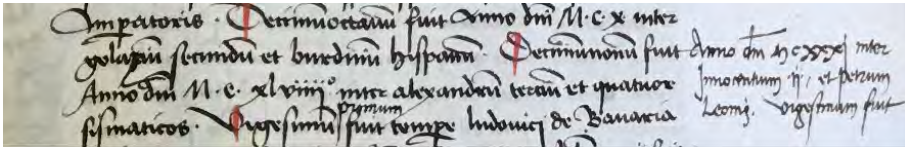 Imperatoris. Decimumoctauum fuit Anno dñi M.C.X inter
golasiũ secundũ et burdinũ hispanũ. Decimumnonũ fuit
Anno dñi M.C.xlviiii° inter alexandrũ terciũ et quatuor
sismaticos. Vigesimũ primum fuit tempore ludovici de Bavaria
Anno dñi MCXXXI inter
Innocentium ij, et petrum
Leonis. Vigesimum fuit